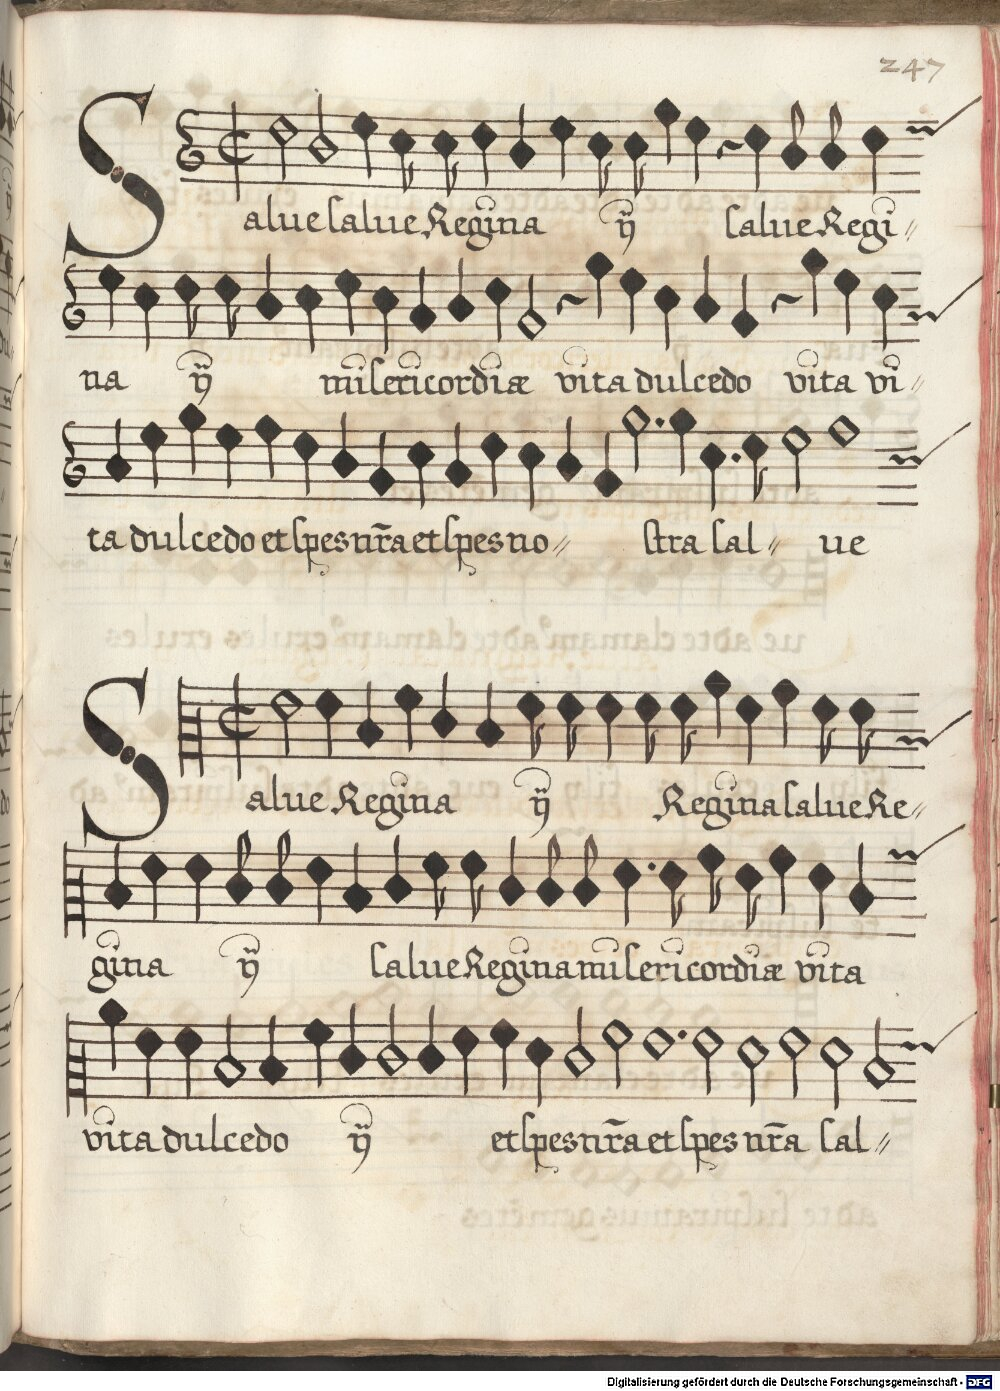 247
Salue salue Regina ÿ salue Regi〃
na ÿ misericordiæ vita dulcedo vita vi〃
ta dulcedo et spes nr̃a et spes no〃 stra sal〃 ue
Salue Regina ÿ Regina salue Re〃
gina ÿ salue Regina misericordiæ vita
vita dulcedo ÿ et spes nr̃a et spes nr̃a sal〃
Digitalisierung gefördert durch die Deutsche Forschungsgemeinschaft - DFG